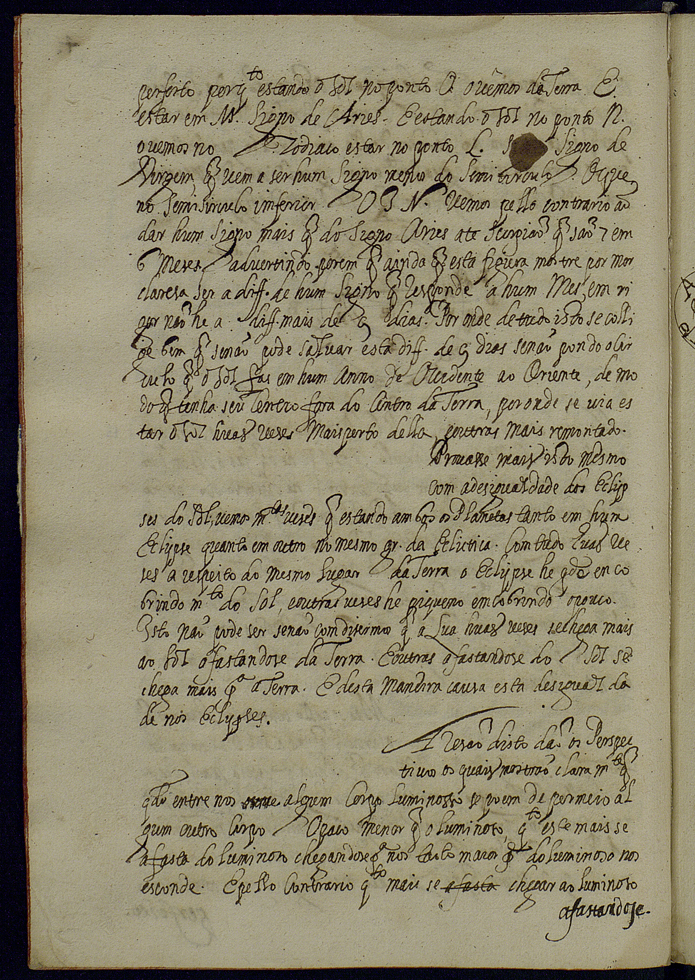 perfeito por q̃to estando o sol no ponto O. o vemos da Terra E.
estar em M. Signo de Aries. E estando o sol no ponto N.
o vemos no Zodiaco estar no ponto L. Signo de
Virgem q̃ vem a ser hum Signo menos do semicirculo E que
no semicirculo inferior O S N. vemos pello contrario an
dar hum Signo mais q̃ do Signo Aries ate Scorpiaõ q̃ saõ 7 em
6 Meses. advertindo porem q̃ ainda q̃ esta figura mostre por mor
claresa ser a diff. de hum Signo q̃ responde a hum Mes, em ri
gor naõ he a diff. mais de 9 dias. Por onde de tudo isto se colli
ge bem q̃ senaõ pode salvar esta diff. de 9 dias senaõ pondo o Cir
culo q̃ o sol fas em hum Anno de Occidente ao Oriente, de mo
do q̃ tenha seu Centro fora do Centro da Terra, por onde se via es
tar o sol huas veses Mais perto della, e outras mais remontado.
Provasse mais isto mesmo
com a desigualdade dos Eclyp
ses do Sol, vemos m.tas veses q̃ estando ambos os Planetas tanto em hum
Eclypse quanto em outro no mesmo gr. da Eclictica. Com tudo huas ve
ses a respeito do mesmo lugar da Terra o Eclypse he gde encо
brindo m.to do Sol, e outras veses he piqueno emcobrindo o pouco.
Isto naõ pode ser senaõ com disermos q̃ a Lua huas veses se chega mais
ao sol afastandose da Terra. E outras afastandose do Sol se
chega mais p.a a Terra. E desta Maneira causa esta desigualda
de nos Eclypses.
A resaõ disto daõ os Perspec
tivos os quais mostraõ clara m.te q̃
qdo entre nos e algum Corpo luminoso se poem de permeio al
gum outro Corpo Opaco menor q̃ o luminoso, q̃to este mais se
afasta do luminoso chegandose p.a nos tanto maior p.te do luminoso nos
esconde. E pello Contrario q̃to mais se afasta chegar ao luminoso
afastandose.